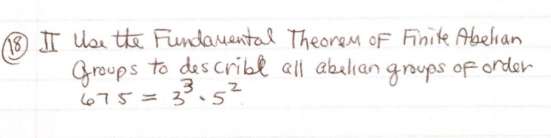 (18) II Use the Fundamental Theorem of Finite Abelian
Groups to describe all abelian groups of order
675 = 3³ · 5²